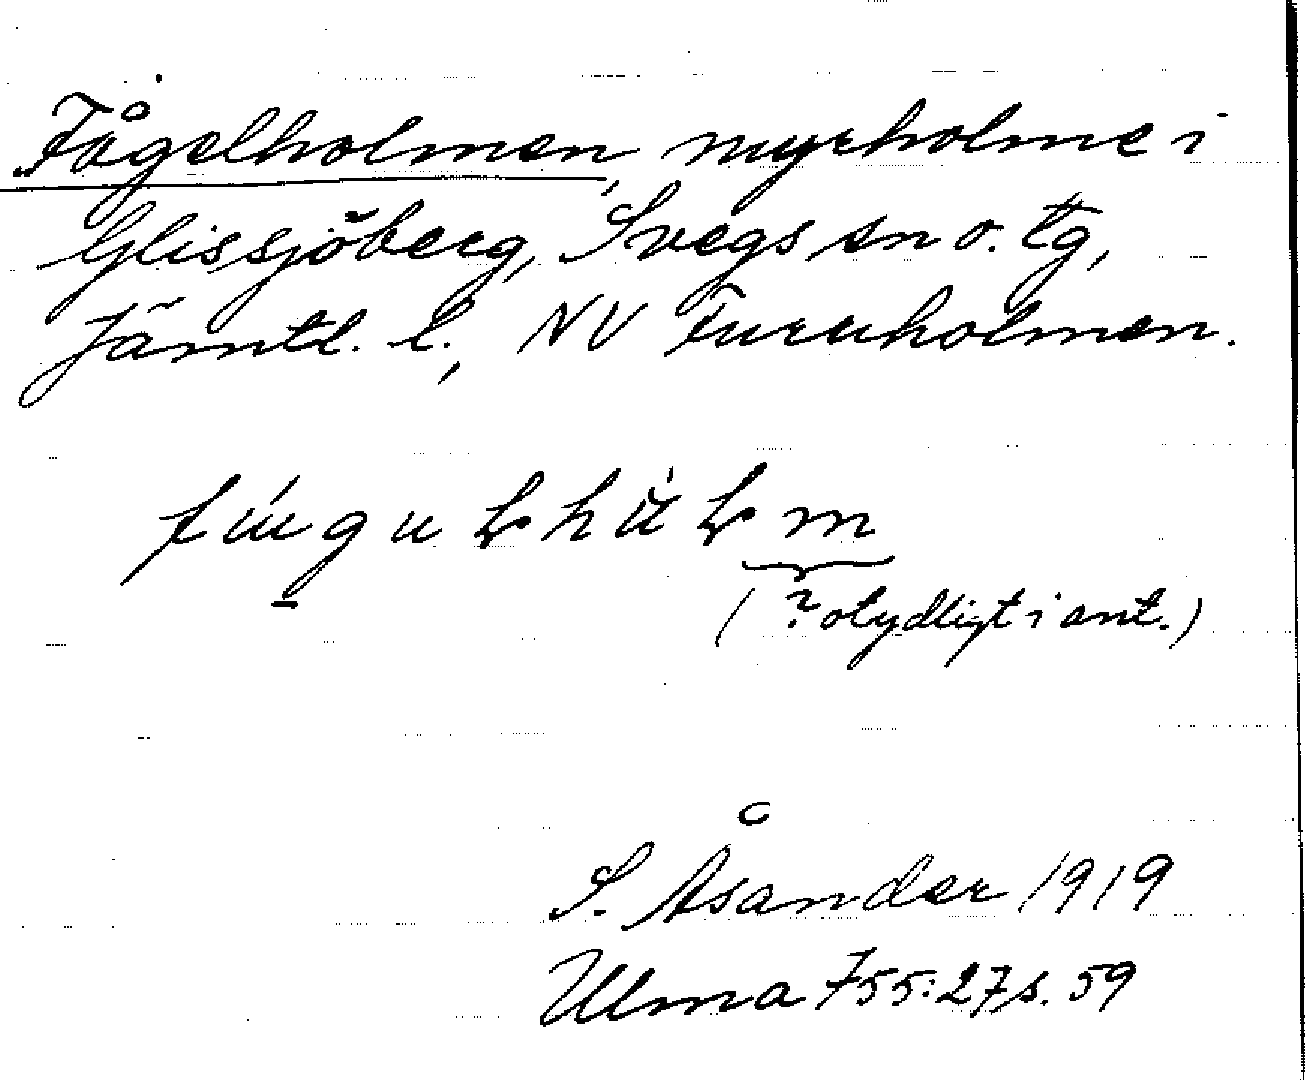 Fågelholmen, myrholme i
Glissjöberg, Svegs sn o. tg,
Jämtl. l., NV Furuholmen.
(? otydligt i ant.)
S. Åsander 1919
Ulma 755:27 s. 59